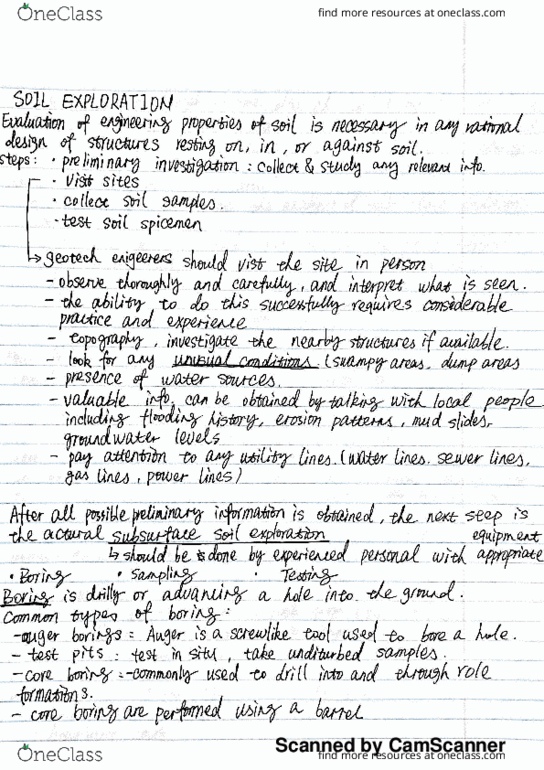 OneClass
find more resources at oneclass.com
SOIL EXPLORATION
Evaluation of engineering properties of soil is necessary in any rational
design of structures resting on, in, or against soil.
steps: · preliminary investigation: collect & study any relevant info.
· visit sites
· collect soil samples.
· test soil spicemen
↳ geotech enigeerers should vist the site in person
- observe thoroughly and carefully, and interpret what is seen.
- the ability to do this successfully requires considerable
practice and experience
- topography, investigate the nearby structures if available.
- look for any unusual conditions. (suampy areas, dump areas
- presence of water sources.
- valuable info. can be obtained by talking with local people
including flooding history, erosion patterns, mud slides,
groundwater levels
- pay attention to any utility lines. (water lines. sewer lines,
gas lines, power lines)
After all possible preliminary information is obtained, the next step is
the actural subsurface soil exploration
↳ should be is done by experienced personal with appropriate equipment
· Boring · Sampling · Testing
Boring is drilly or advancing a hole into the ground.
Common types of boring:
- auger borings: Auger is a screwlike tool used to bore a hole.
- test pits: test in situ, take unditurbed samples.
- core boring: - commonly used to drill into and through role
formations.
- core boring are performed using a barrel
OneClass
Scanned by CamScanner
find more resources at oneclass.com